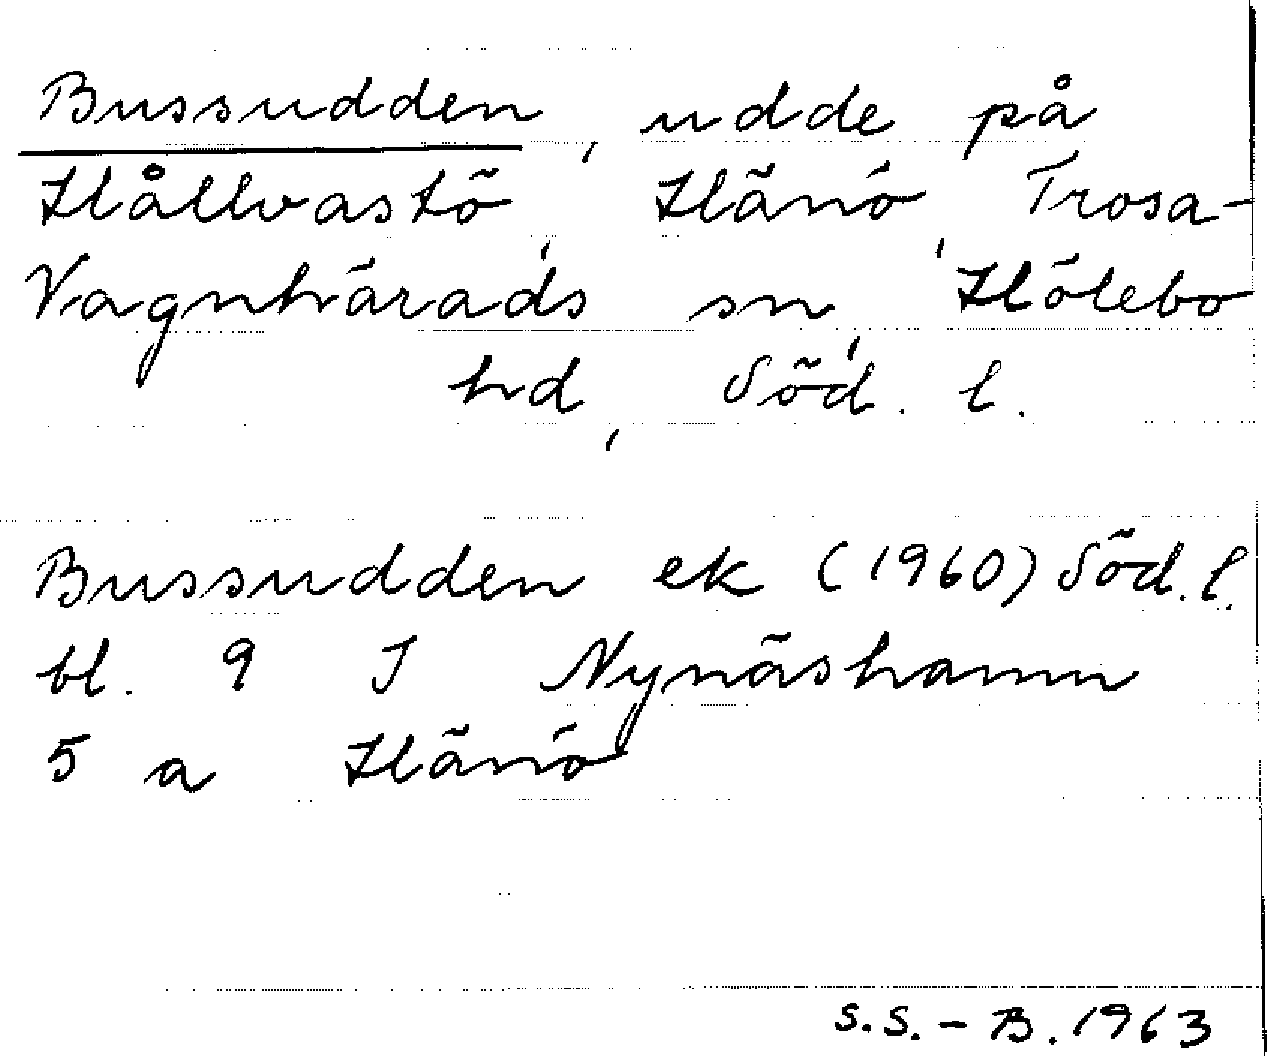 Bussudden, udde på
Hållvastö, Hänö, Trosa-
Vagnhärads sn, Hölebo
hd, Söd. l.
Bussudden ek (1960) Söd. l.
bl. 9 I Nynäshamn
5 a Hänö
S.S.-B. 1963